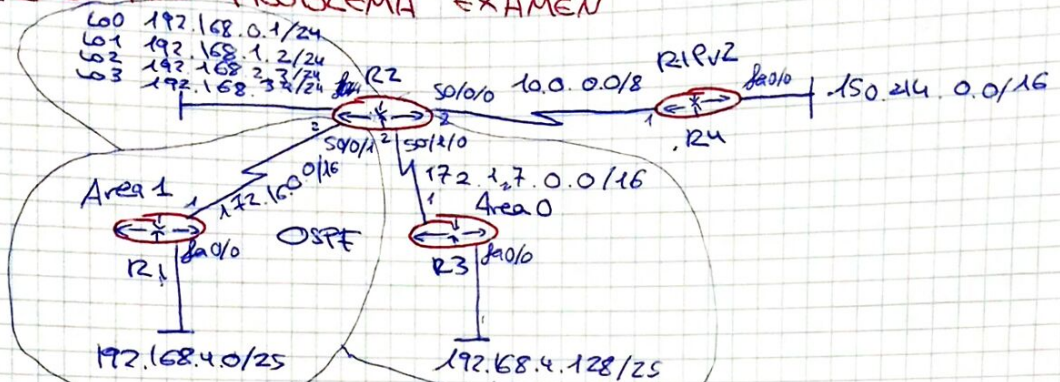 PROBLEMA EXAMEN
Lo0 192.168.0.1/24
Lo1 192.168.1.2/24
Lo2 192.168.2.3/24
Lo3 192.168.3.4/24
R2
S0/0/0
10.0.0.0/8
RIPv2
fa0/0
150.214.0.0/16
2
2
1
R4
S0/0/1
2
S0/1/0
172.16.0.0/16
172.17.0.0/16
Area 1
1
1
Area 0
fa0/0
OSPF
fa0/0
R1
R3
192.168.4.0/25
192.168.4.128/25